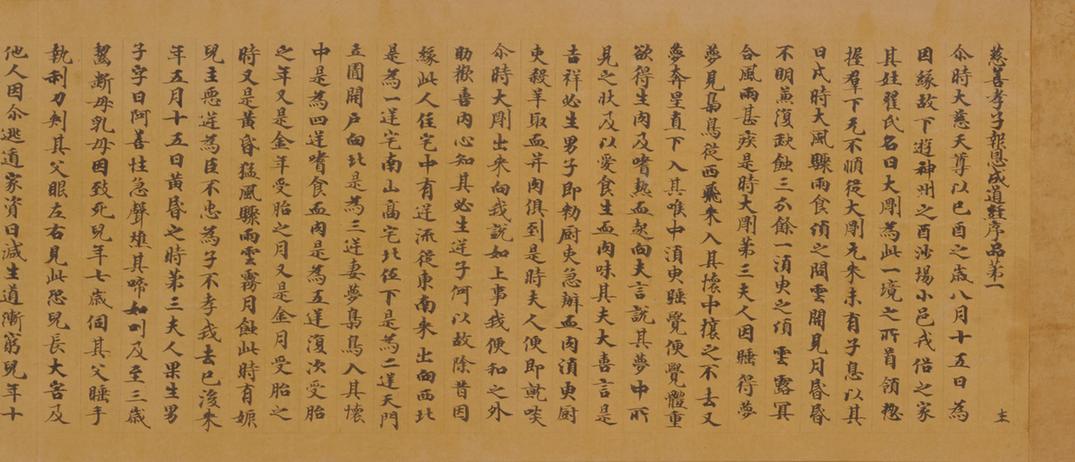 慈善孝子報恩成道經序品第一
尒時大慈天尊以己酉之歲八月十五日為
因緣故下遊神州之酉沙場小邑戎俗之家
其姓翟氏名曰大剛為此一境之所首領惣
握羣下无不順從大剛元來未有子息以其
日戌時大風驟雨食頃之間雲開見月昏昏
不明兼復缺蝕三分餘一須臾之頃雲露冥
合風雨甚疾是時大剛第三夫人因睡得夢
夢見鳥從西飛來入其懷中攘之不去又
夢奔星直下入其唯中須臾睡覺便覺體重
欲得生肉及嗜熱血起向夫言說其夢中所
見之狀及以愛食生血肉味其夫大喜言是
吉祥必生男子即勑厨東急辦血肉須臾厨
吏殺羊取血并肉俱到是時夫人便即噉
尒時大剛出來向我說如上事我便和之外
助歡喜內心知其必生逆子何以故除昔因
緣此人住宅中有逆流從東南來出向西北
是為一逆宅南山高宅北伍下是為二逆天門
立圊開戶向北是為三逆妻夢鳥入其懷
中是為四逆嗜食血肉是為五逆復次受胎
之年又是金年受胎之月又是金月受胎之
時又是黃昏猛風驟雨雲霧月蝕此時有娠
兒主惡逆為臣不忠為子不孝我去已後來
年五月十五日黃昏之時第三夫人果生男
子字曰阿善性急聲雄其啼如叫及至三歲
齧斷母乳母因致死兒年七歲伺其父睡手
執利刀刾其父眼左右見此恐兒長大害及
他人因尒逃逝家資日減生道漸窮兒年十